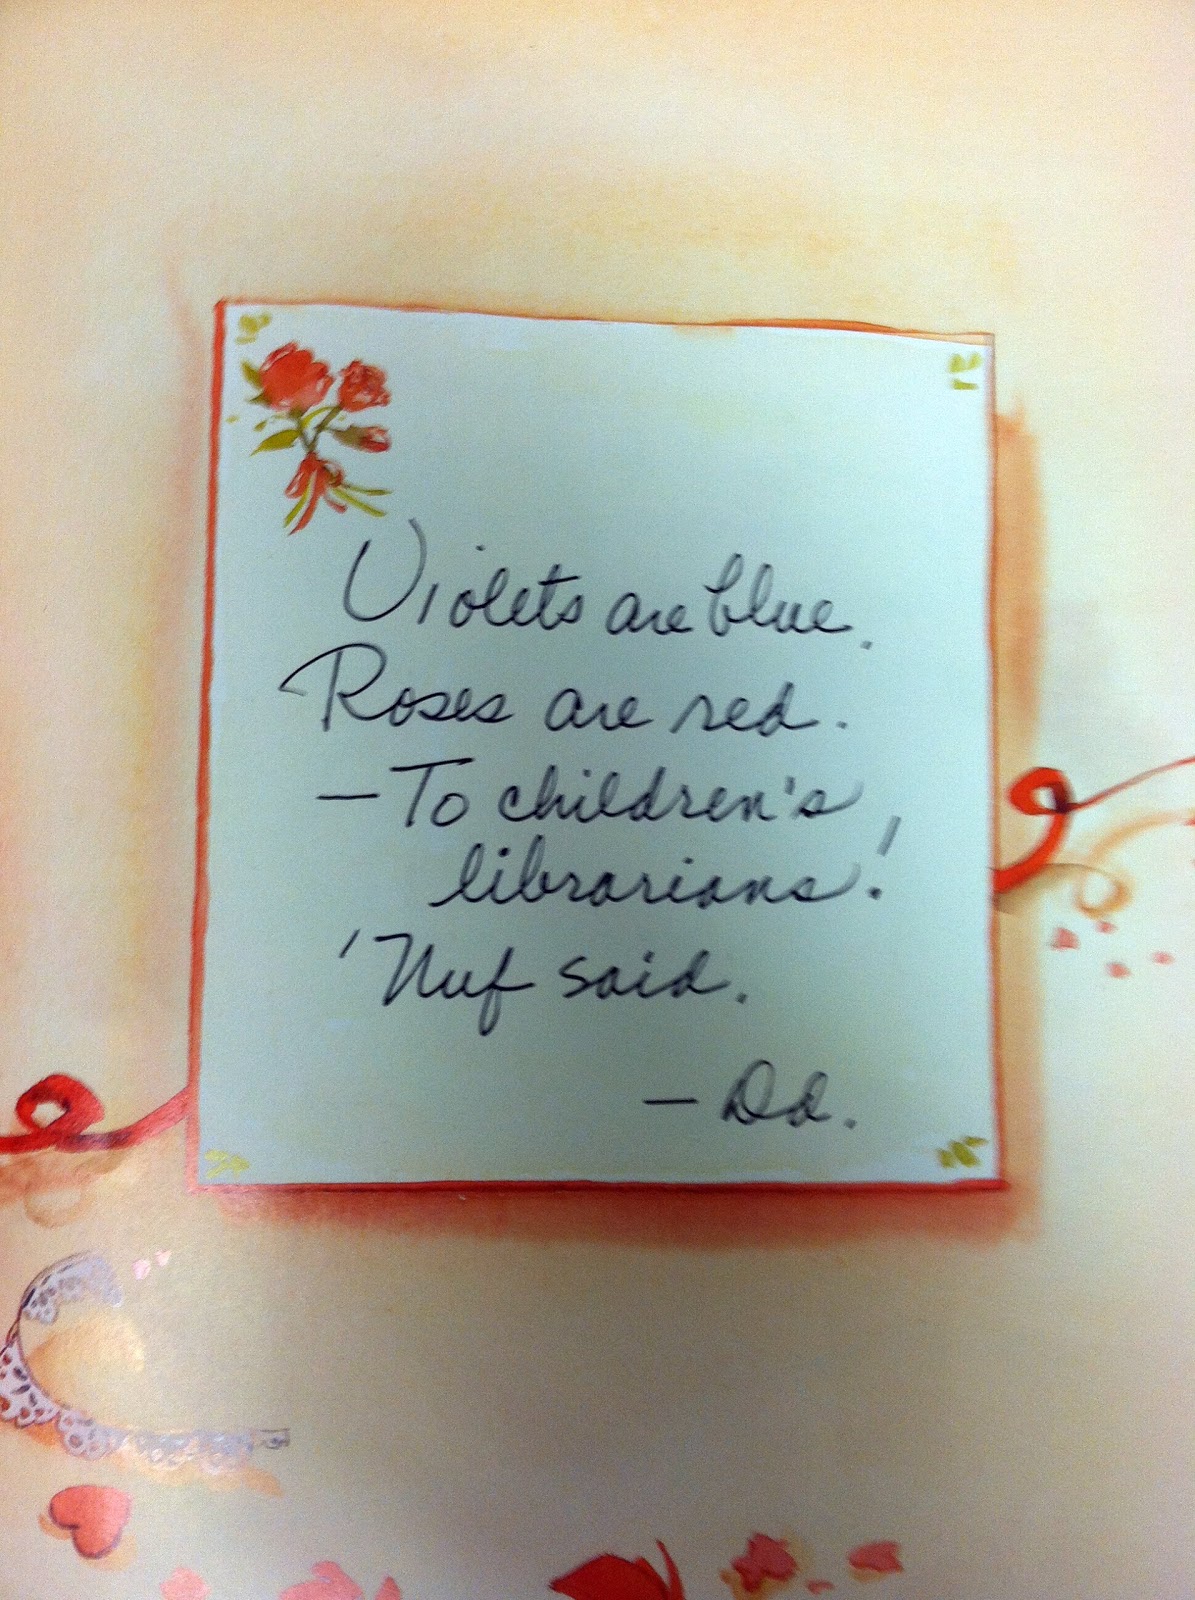 Violets are blue.
Roses are red.
— To children's
librarians!
'Nuf said.
— Dd.